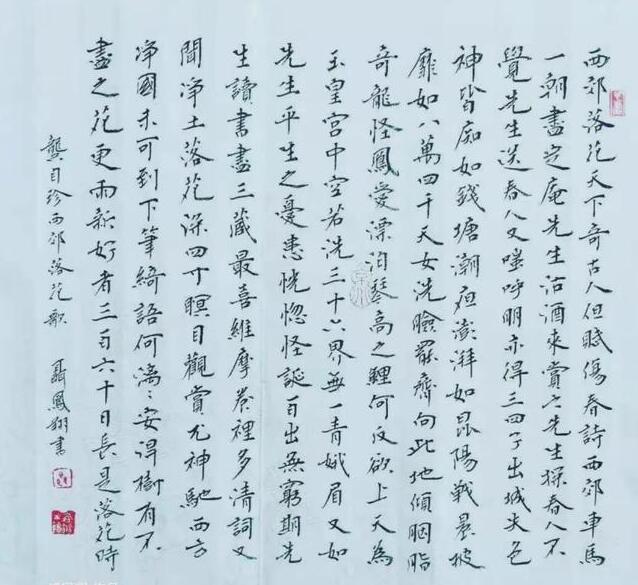 西郊落花天下奇古人但賦傷春詩西郊車馬
一朝盡定庵先生沽酒來賞之先生探春人不
覺先生送春人又嗤呼朋亦得三四子出城失色
神皆痴如錢塘潮夜澎湃如昆陽戰晨披
靡如八萬四千天女洗臉罷齊向此地傾胭脂
奇龍怪鳳愛漂泊琴高之鯉何反欲上天為
玉皇宮中空若洗三十六界無一青娥眉又如
先生平生之憂患恍惚怪誕百出無窮期先
生讀書盡三藏最喜維摩卷裡多清詞又
聞淨土落花深四寸瞑目觀賞尤神馳西方
淨國未可到下筆綺語何漓〻安得樹有不
盡之花更雨新好者三百六十日長是落花時
龔自珍西郊落花歌 聶鳳翔書